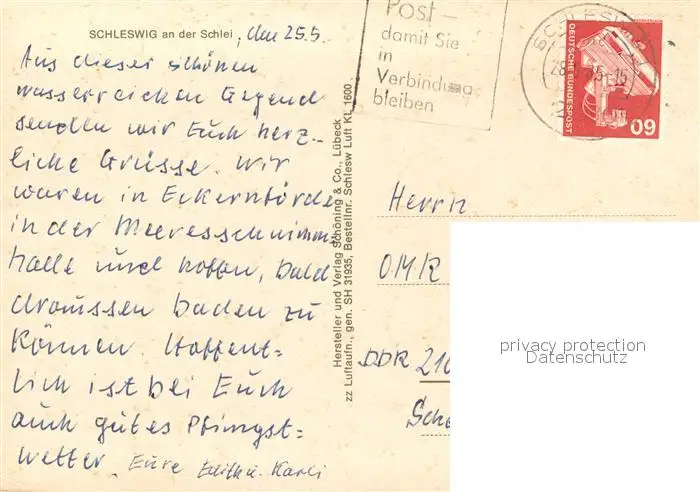 SCHLESWIG an der Schlei, den 25.5.
Aus dieser schönen
wasserreichen Gegend
senden wir Euch herz-
liche Grüsse. Wir
waren in Eckernförde
in der Meeresschwimm
halle und hoffen, bald
draussen baden zu
können. Hoffent=
lich ist bei Euch
auch gutes Pfingst=
wetter. Eure Edith u. Karli
Hersteller und Verlag Schöning & Co., Lübeck
zz Luftaufn., gen. SH 31935, Bestellnr. Schlesw Luft KL 1600
Post-
damit Sie
in
Verbindung
bleiben
SCHLESWIG
DEUTSCHE BUNDESPOST
60
Herrn
OMR
DDR 210
Sch
privacy protection
Datenschutz